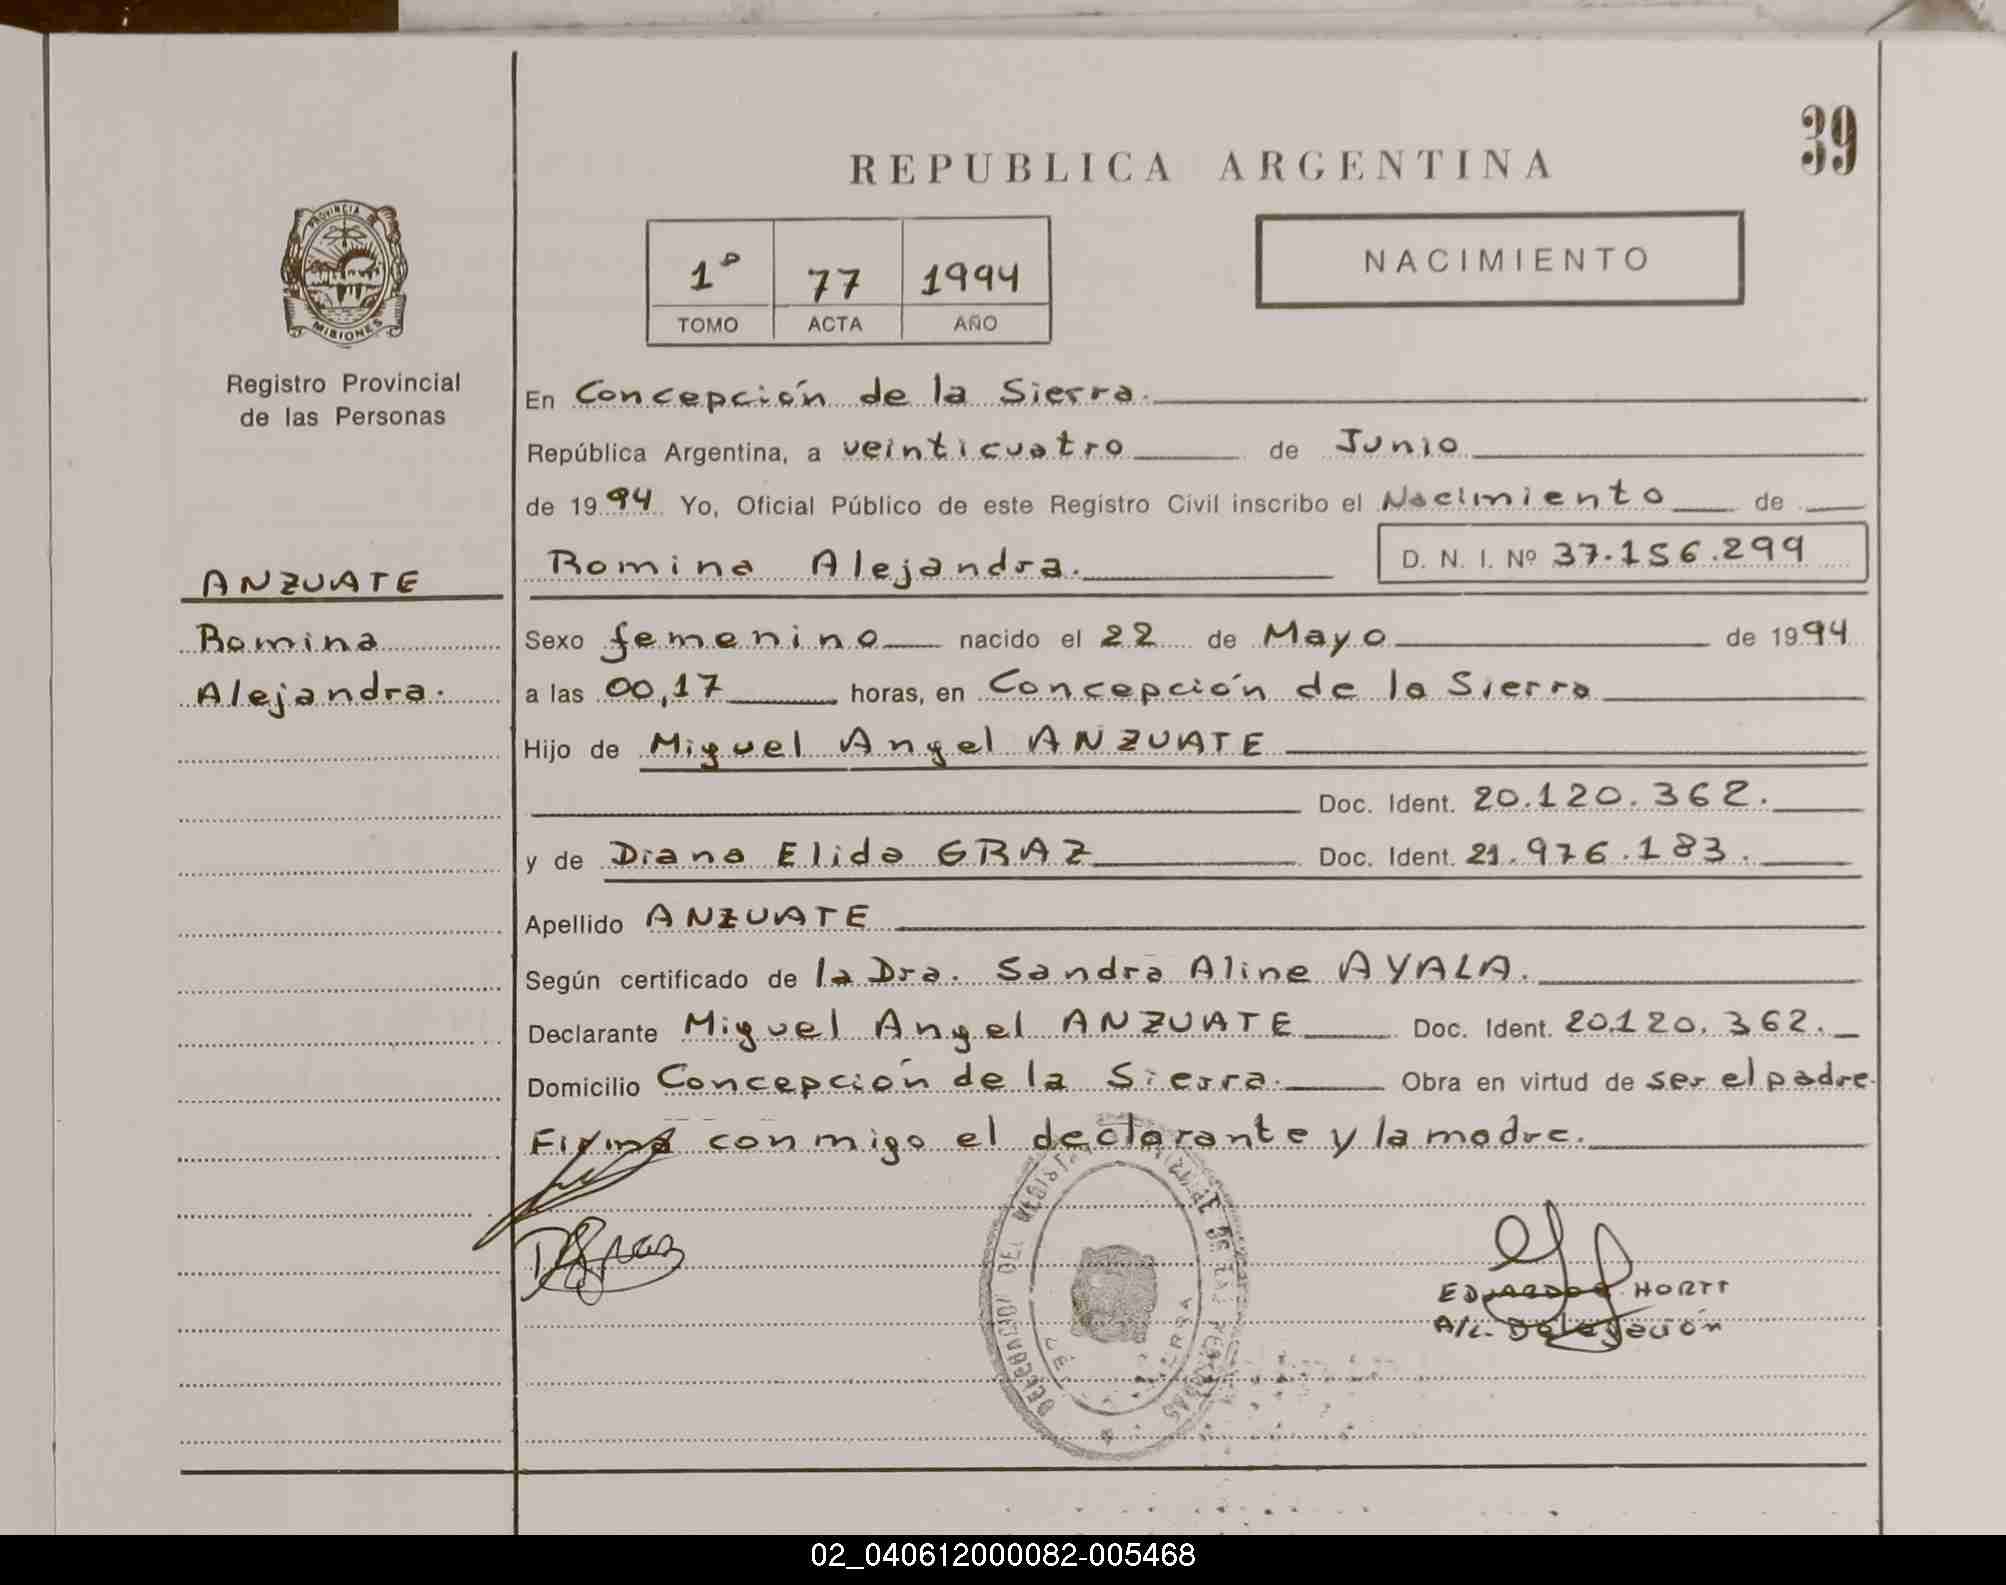 39
REPUBLICA ARGENTINA
PROVINCIA DE
MISIONES
Registro Provincial
de las Personas
1º 77 1994
TOMO ACTA AÑO
NACIMIENTO
En Concepción de la Sierra.
República Argentina, a veinticuatro de Junio
de 1994 Yo, Oficial Público de este Registro Civil inscribo el Nacimiento de
Romina Alejandra. D. N. I. Nº 37.156.299
ANZUATE
Romina
Alejandra.
Sexo femenino nacido el 22 de Mayo de 1994
a las 00,17 horas, en Concepción de la Sierra
Hijo de Miguel Angel ANZUATE
Doc. Ident. 20.120.362.
y de Diana Elida GRAZ Doc. Ident. 21.976.183.
Apellido ANZUATE
Según certificado de la Dra. Sandra Aline AYALA.
Declarante Miguel Angel ANZUATE Doc. Ident. 20.120.362.
Domicilio Concepción de la Sierra. Obra en virtud de ser el padre.
Firma conmigo el declarante y la madre.
EDUARDO HORTT
A/C. Delegación
02_040612000082-005468